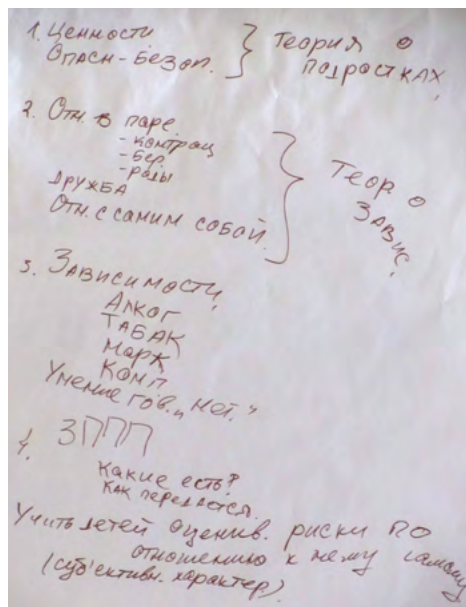 1. Ценности
Опасн-безоп.
Теория о
подростках
2. Отн. в паре
- контрац
- бер.
- роды
дружба
Отн. с самим собой.
Теор о
завис.
3. Зависимости
Алког
Табак
Марк
Комп
Умение гов. „нет."
4. ЗППП
Какие есть?
как передаются.
Учить детей оценив. риски по
отношению к нему самому
(субъективн. характер)